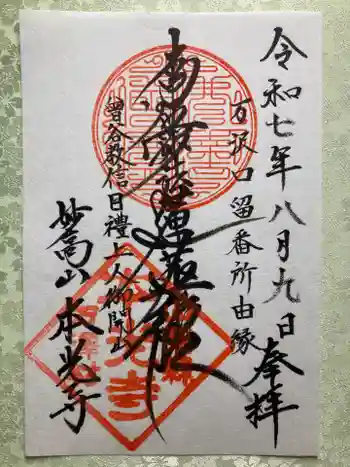 令和七年八月九日
奉拝
万沢口留番所由縁
南無妙法蓮華経
曽谷教信日禮上人御開山
妙高山 本光寺